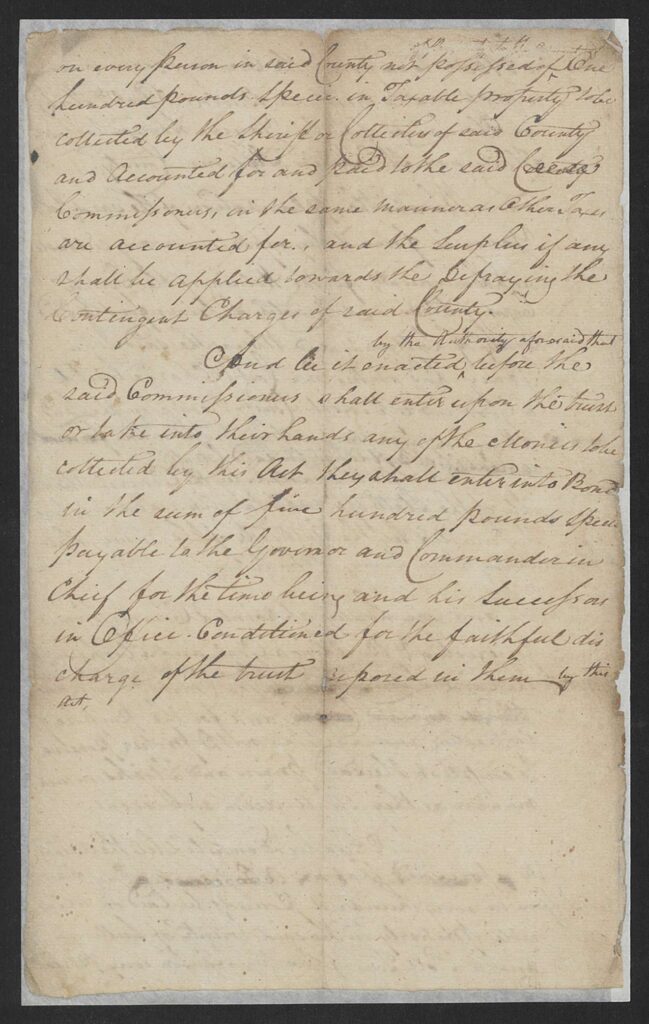 on every person in said County not possessed of One
hundred pounds Specie in Taxable property to be
collected by the Sheriff or Collectors of said County
and Accounted for and paid to the said
Commissioners, in the same manner as Other Taxes
are accounted for, and the Surplus if any
shall be applied towards the Defraying the
Contingent Charges of said County.
by the Authority aforesaid that
And be it enacted before the
said Commissioners shall enter upon the trust
or take into their hands any of the Monies to be
collected by this Act they shall enter into Bond
in the sum of five hundred pounds Specie
payable to the Governor and Commander in
Chief for the time being and his Successors
in Office Conditioned for the faithful dis
charge of the trust reposed in them by this
act.